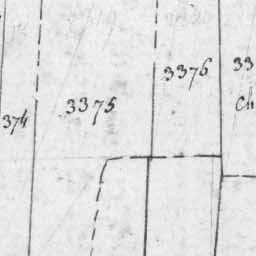 3376
33
3375
ch
374